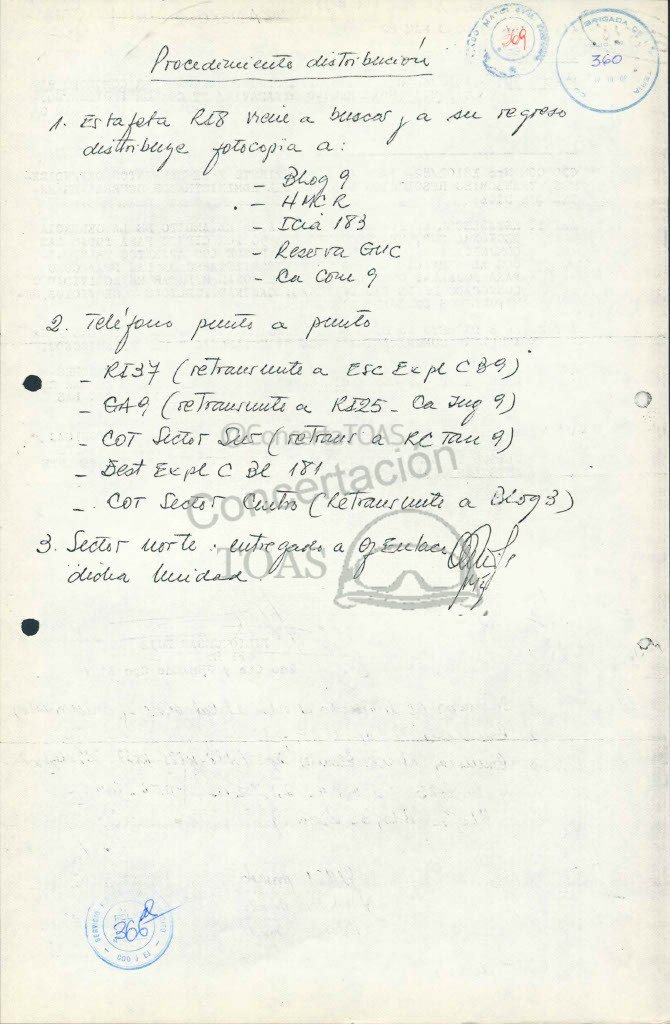 369
BRIGADA DE
360
Procedimiento distribución
1. Estafeta RI8 viene a buscar y a su regreso
distribuye fotocopia a:
- Blog 9
- HMCR
- Icia 183
- Reserva GUC
- Ca Com 9
2. Teléfono punto a punto
- RI37 (retransmite a Esc Expl C B 9)
- GA9 (retransmite a RI25 - Ca Ing 9)
- COT Sector Sur (retrans a RC Tan 9)
- Dest Expl C Bl 181
- COT Sector Centro (Retransmite a Blog 3)
3. Sector norte: entregado a Of Enlace
dicha Unidad
@ConcertaTOAS
Concertación
TOAS
SERVICIO
366